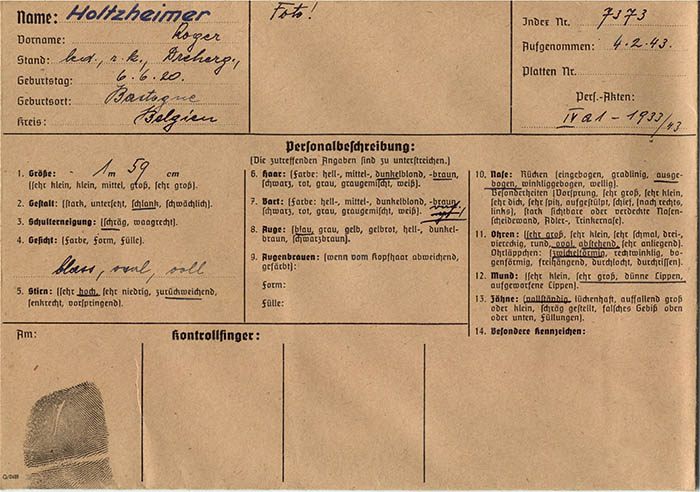 Name: Holtzheimer
Vorname: Roger
Stand: led., r.k., Dreherg.,
Geburtstag: 6.6.20.
Geburtsort: Bastogne
Kreis: Belgien
Foto!
Index Nr. 7373
Aufgenommen: 4.2.43.
Platten Nr.
Pers.-Akten:
IV a 1 - 1933/43
Personalbeschreibung:
(Die zutreffenden Angaben sind zu unterstreichen.)
1. Größe: 1 m 59 cm
(sehr klein, klein, mittel, groß, sehr groß).
2. Gestalt: (stark, untersetzt, schlank, schwächlich)
3. Schulterneigung: (schräg, waagrecht).
4. Gesicht: (Farbe, Form, Fülle).
blass, oval, voll
5. Stirn: (sehr hoch, sehr niedrig, zurückweichend,
senkrecht, vorspringend).
6. Haar: (Farbe: hell-, mittel-, dunkelblond, -braun,
schwarz, rot, grau, graugemischt, weiß).
7. Bart: (Farbe: hell-, mittel-, dunkelblond, -braun
schwarz, rot, grau, graugemischt, weiß).
8. Auge: (blau, grau, gelb, gelbrot, hell-, dunkel-
braun, schwarzbraun).
9. Augenbrauen: (wenn vom Kopfhaar abweichend,
gefärbt):
Form:
Fülle:
10. Nase: Rücken (eingebogen, gradlinig, ausge-
bogen, winkliggebogen, wellig).
Besonderheiten (Vorsprung, sehr groß, sehr klein,
sehr dick, sehr spitz, aufgestülpt, schief, (nach rechts,
links), stark sichtbare oder verdeckte Nasen-
scheidewand, Adler-, Trinkernase).
11. Ohren: (sehr groß, sehr klein, sehr schmal, drei-,
viereckig, rund, oval abstehend, sehr anliegend).
Ohrläppchen: (zwickelförmig, rechtwinklig, bo-
genförmig, freihängend, durchlocht, durchrissen).
12. Mund: (sehr klein, sehr groß, dünne Lippen,
aufgeworfene Lippen).
13. Zähne: (vollständig, lückenhaft, auffallend groß
oder klein, schräg gestellt, falsches Gebiß oben
oder unten, Füllungen).
14. Besondere Kennzeichen:
Am:
Kontrollfinger: